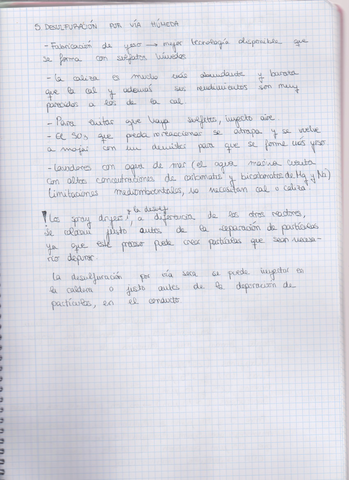 5. DESULFURACIÓN POR VÍA HÚMEDA
- Fabricación de yeso → mejor tecnología disponible que
se forma con sulfatos húmedos
- La caliza es mucho más abundante y barata
que la cal y además sus rendimientos son muy
parecidos a los de la cal
- Para evitar que haya sulfitos, inyecto aire
- El SO₃ que queda sin reaccionar se atrapa y se vuelve
a mojar con un demister para que se forme más yeso
- Lavadores con agua de mar (el agua marina cuenta
con altas concentraciones de carbonatos y bicarbonatos de Mg y Na)
Limitaciones medioambientales, no necesitan cal o caliza.
Los spray dryer, y la desulf a diferencia de los otros reactores,
se colocan justo antes de la separación de partículas
ya que este proceso puede crear partículas que sean necesa-
rio depurar.
La desulfuración por vía seca se puede inyectar en
la caldera o justo antes de la depuración de
partículas, en el conducto.